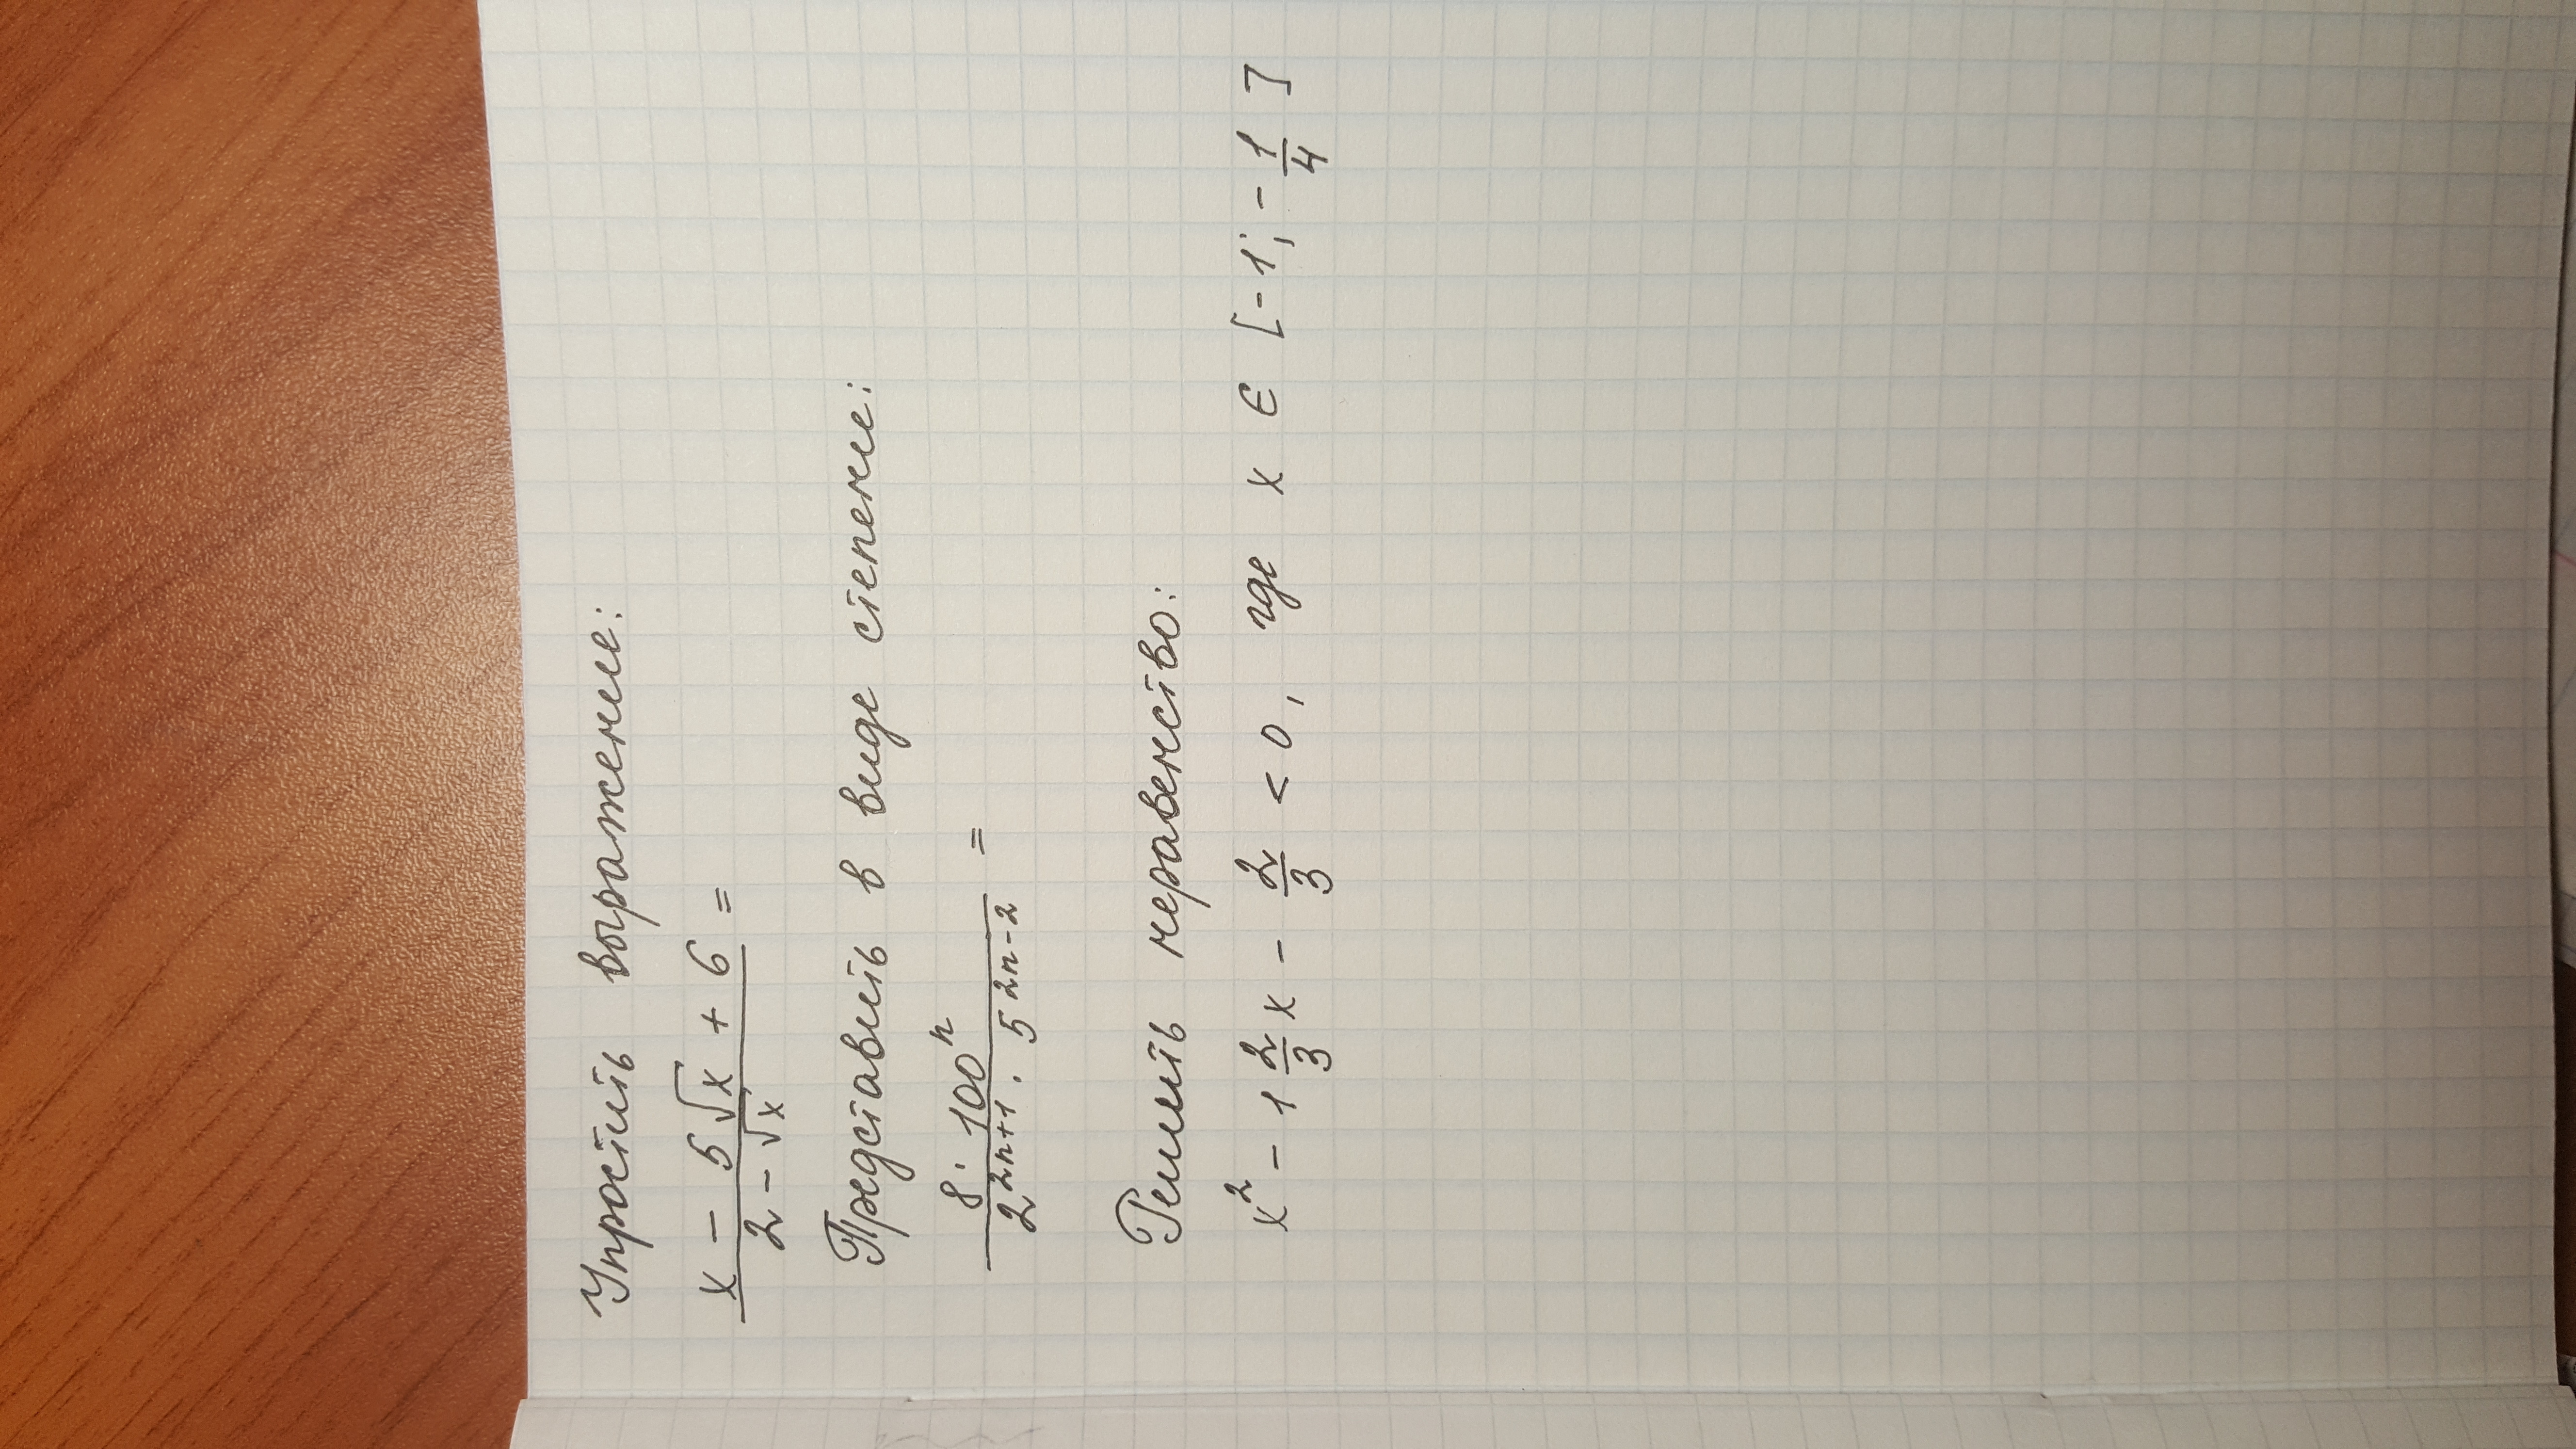 Упростить выражение:
x - 5√x + 6 =
2 - √x
Представить в виде степени:
8 · 100ⁿ =
2²ⁿ⁺¹ · 5²ⁿ⁻²
Решить неравенство:
x² - 1 2/3 x - 2/3 < 0, где x ∈ [-1; -1/4]